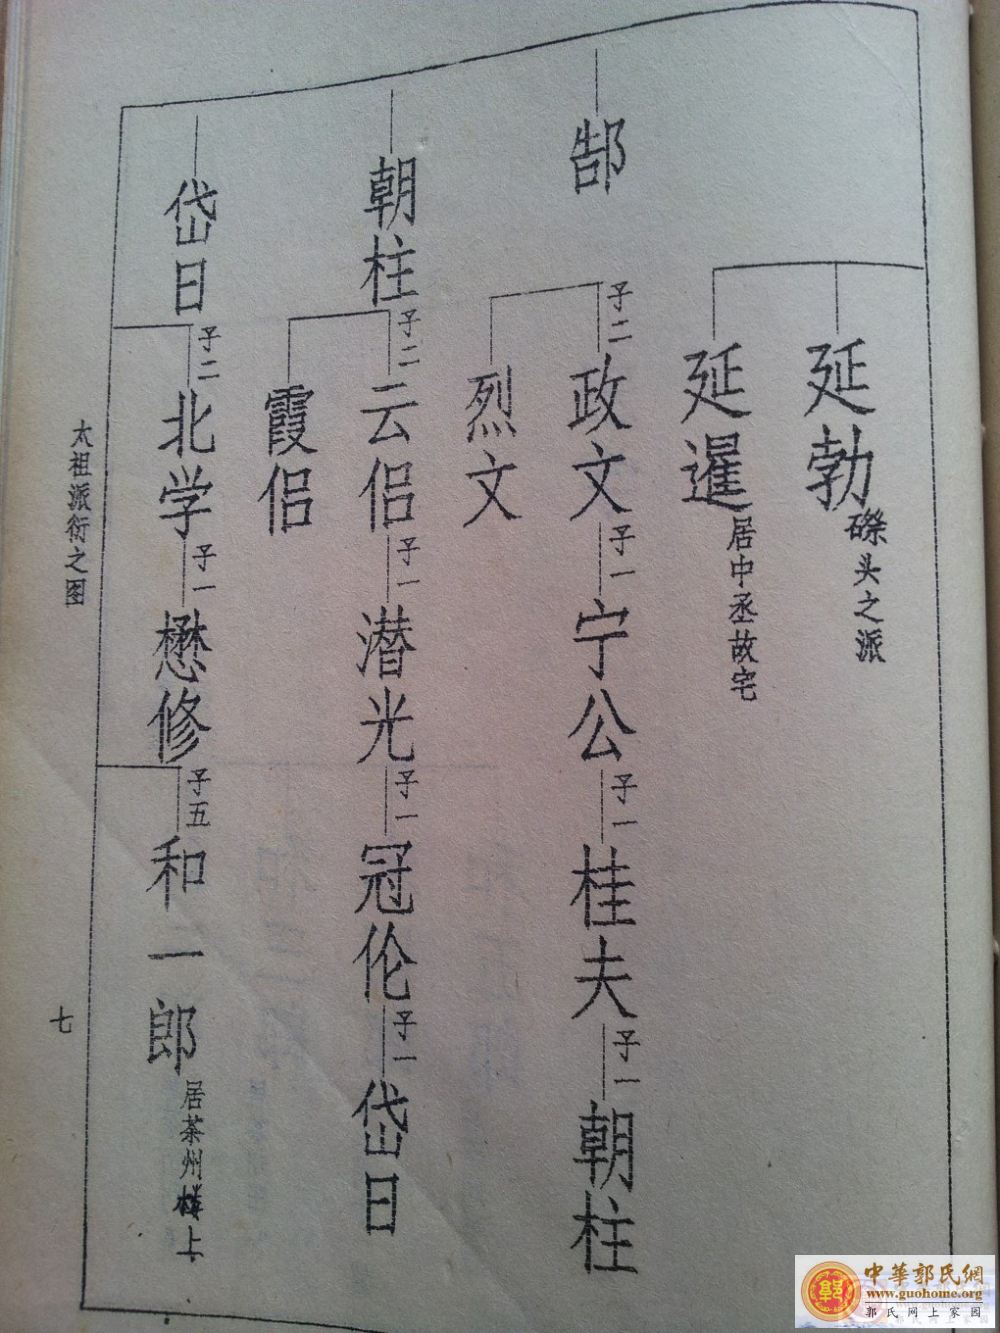 延勃
磔头之派
延暹
居中丞故宅
郜
子二
政文
子一
宁公
子一
桂夫
子一
朝柱
烈文
朝柱
子二
云侣
子一
潜光
子一
冠伦
子一
岱日
霞侣
岱日
子二
北学
子一
懋修
子五
和一郎
居茶州楼上
太祖派衍之图
七
中華郭氏網
www.guohome.org
郭氏网上家园